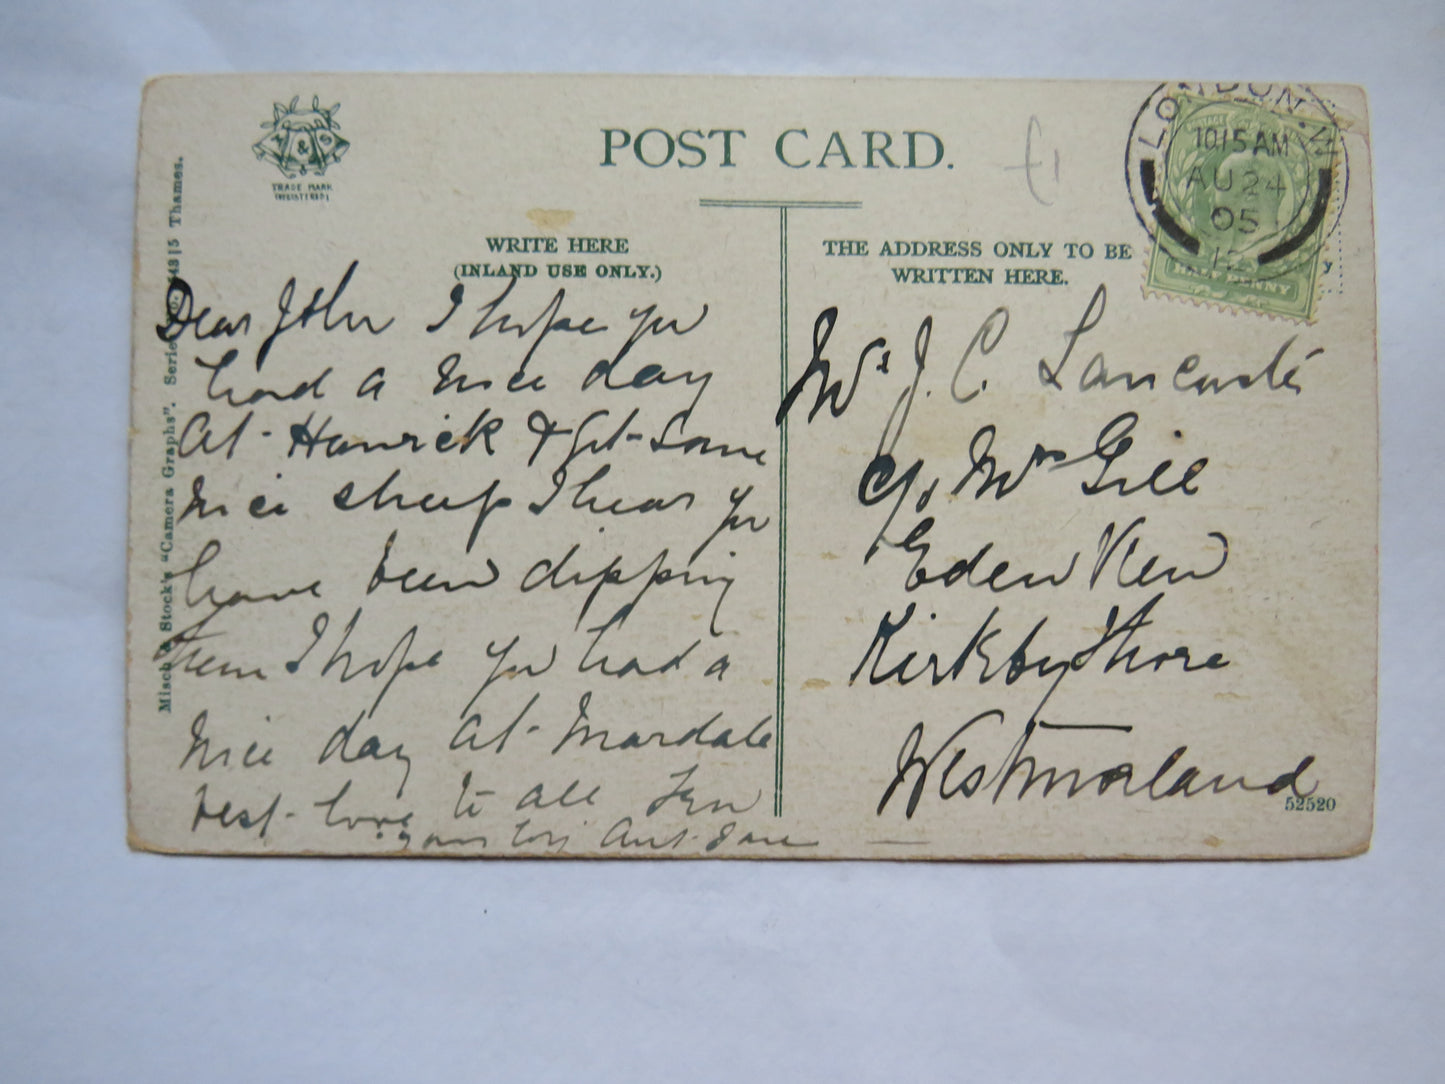 POST CARD.
& S
TRADE MARK
(REGISTERED)
£1
LONDON. W
10.15 AM
AU 24
05
HALFPENNY
WRITE HERE
(INLAND USE ONLY.)
Dear John I hope you
had a nice day
at Hawick & Get some
nice sheep I hear you
have been dipping
them I hope you had a
nice day at Mardale
best love to all from
your Aunt Jane
THE ADDRESS ONLY TO BE
WRITTEN HERE.
Mr J. C. Lancaster
c/o Mrs Gill
Eden View
Kirkby Thore
Westmorland
52520
Misch & Stock's "Camera Graphs". Series No. 43|5 Thames.